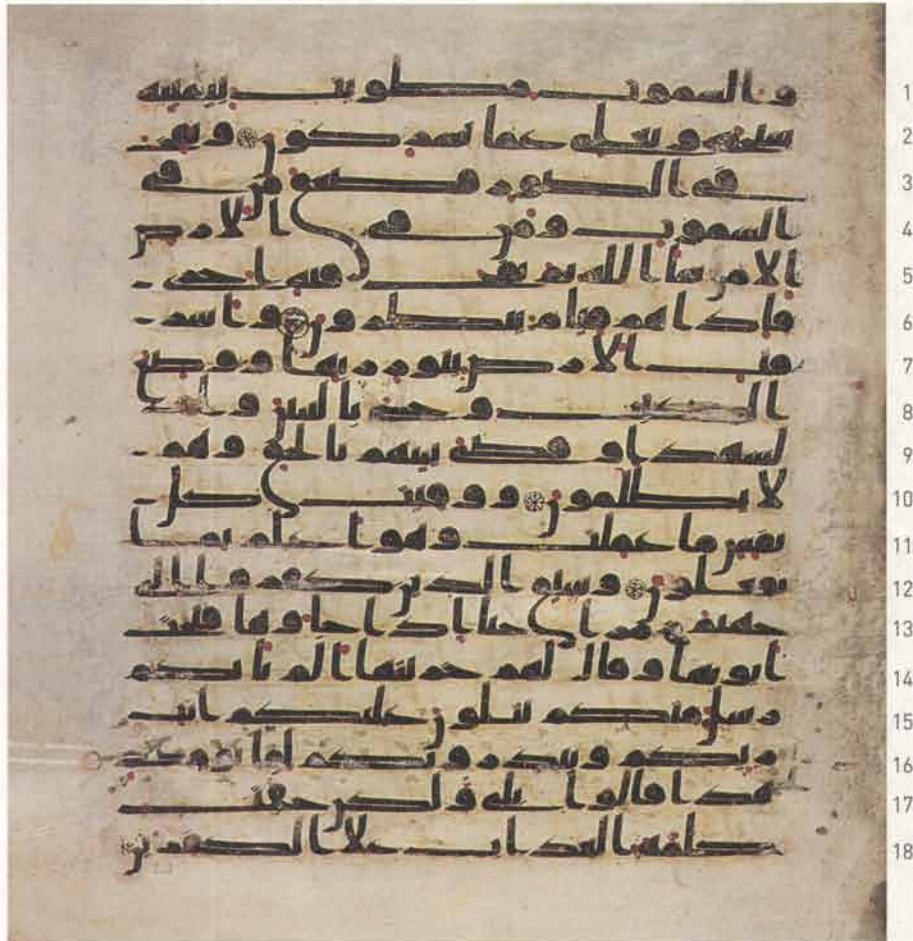 1 والسموت مطويت بيمينه
2 سبحنه وتعلى عما يشركون ونفخ
3 في الصور فصعق من في
4 السموت ومن في الارض
5 الا من شا الله ثم نفخ فيه اخرى
6 فاذا هم قيام ينظرون واشر
7 قت الارض بنور ربها ووضع
8 الكتب وجى بالنبين وا
9 لشهدا وقضى بينهم بالحق وهم
10 لا يظلمون ووفيت كل
11 نفس ما عملت وهو اعلم بما
12 يفعلون وسيق الذين كفروا الى
13 جهنم زمرا حتى اذا جاوها فتحت
14 ابوبها وقال لهم خزنتها الم ياتكم
15 رسل منكم يتلون عليكم ايت
16 ربكم وينذرونكم لقا يومكم
17 هذا قالوا بلى ولكن حقت
18 كلمة العذاب على الكفرين